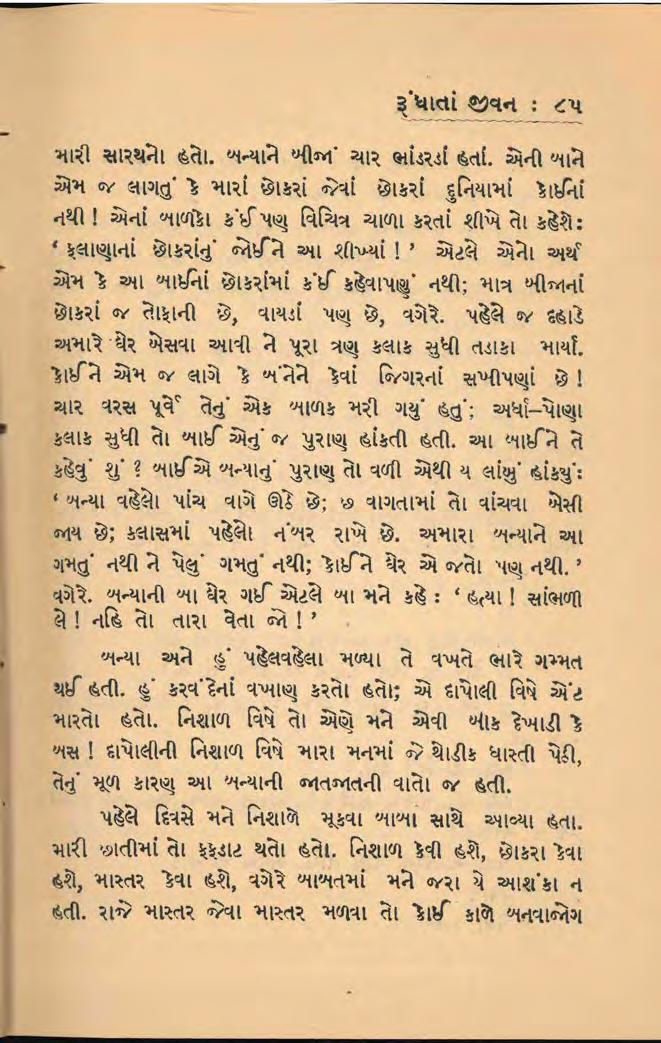 રૂંધાતાં જીવન : ૮૫
મારી સારથનો હતો. બન્યાને બીજાં ચાર ભાંડરડાં હતાં. એની બાને
એમ જ લાગતું કે મારાં છોકરાં જેવાં છોકરાં દુનિયામાં કોઈનાં
નથી ! એનાં બાળકો કંઈ પણ વિચિત્ર ચાળા કરતાં શીખે તો કહેશે:
‘ ફલાણાનાં છોકરાંનું જોઈને આ શીખ્યાં ! ’ એટલે એનો અર્થ
એમ કે આ બાઈનાં છોકરાંમાં કંઈ કહેવાપણું નથી; માત્ર બીજાનાં
છોકરાં જ તોફાની છે, વાયડાં પણ છે, વગેરે. પહેલે જ દહાડે
અમારે ઘેર બેસવા આવી ને પૂરા ત્રણ કલાક સુધી તડાકા માર્યા.
કોઈને એમ જ લાગે કે બંનેને કેવાં જિગરનાં સખીપણાં છે !
ચાર વરસ પૂર્વે તેનું એક બાળક મરી ગયું હતું; અર્ધા–પોણા
કલાક સુધી તો બાઈ એનું જ પુરાણ હાંકતી હતી. આ બાઈને તે
કહેવું શું ? બાઈએ બન્યાનું પુરાણ તો વળી એથી ય લાંબું હાંક્યું:
‘ બન્યા વહેલો પાંચ વાગે ઊઠે છે; છ વાગતામાં તો વાંચવા બેસી
જાય છે; કલાસમાં પહેલો નંબર રાખે છે. અમારા બન્યાને આ
ગમતું નથી ને પેલું ગમતું નથી; કોઈને ઘેર એ જતો પણ નથી. ’
વગેરે. બન્યાની બા ઘેર ગઈ એટલે બા મને કહે : ‘ હત્યા ! સાંભળી
લે ! નહિ તો તારા વેતા જો ! ’
બન્યા અને હું પહેલવહેલા મળ્યા તે વખતે ભારે ગમ્મત
થઈ હતી. હું કરવંદેનાં વખાણ કરતો હતો; એ દાપોલી વિષે એંટ
મારતો હતો. નિશાળ વિષે તો એણે મને એવી બીક દેખાડી કે
બસ ! દાપોલીની નિશાળ વિષે મારા મનમાં જે થોડીક ધાસ્તી પેઠી,
તેનું મૂળ કારણ આ બન્યાની જાતજાતની વાતો જ હતી.
પહેલે દિવસે મને નિશાળે મૂકવા બાબા સાથે આવ્યા હતા.
મારી છાતીમાં તો ફફડાટ થતો હતો. નિશાળ કેવી હશે, છોકરા કેવા
હશે, માસ્તર કેવા હશે, વગેરે બાબતમાં મને જરા યે આશંકા ન
હતી. રાજે માસ્તર જેવા માસ્તર મળવા તો કોઈ કાળે બનવાજોગ